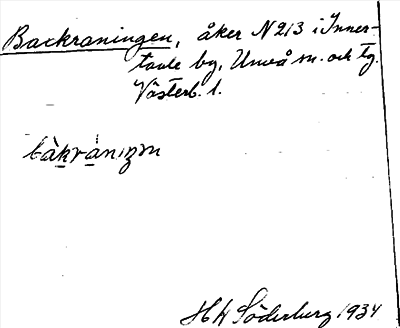 Backraningen, åker N 213 i Inner-
tavle by, Umeå sn. och tg.
Västerb. l.
bàkrànıŋən
H H Söderburg 1934